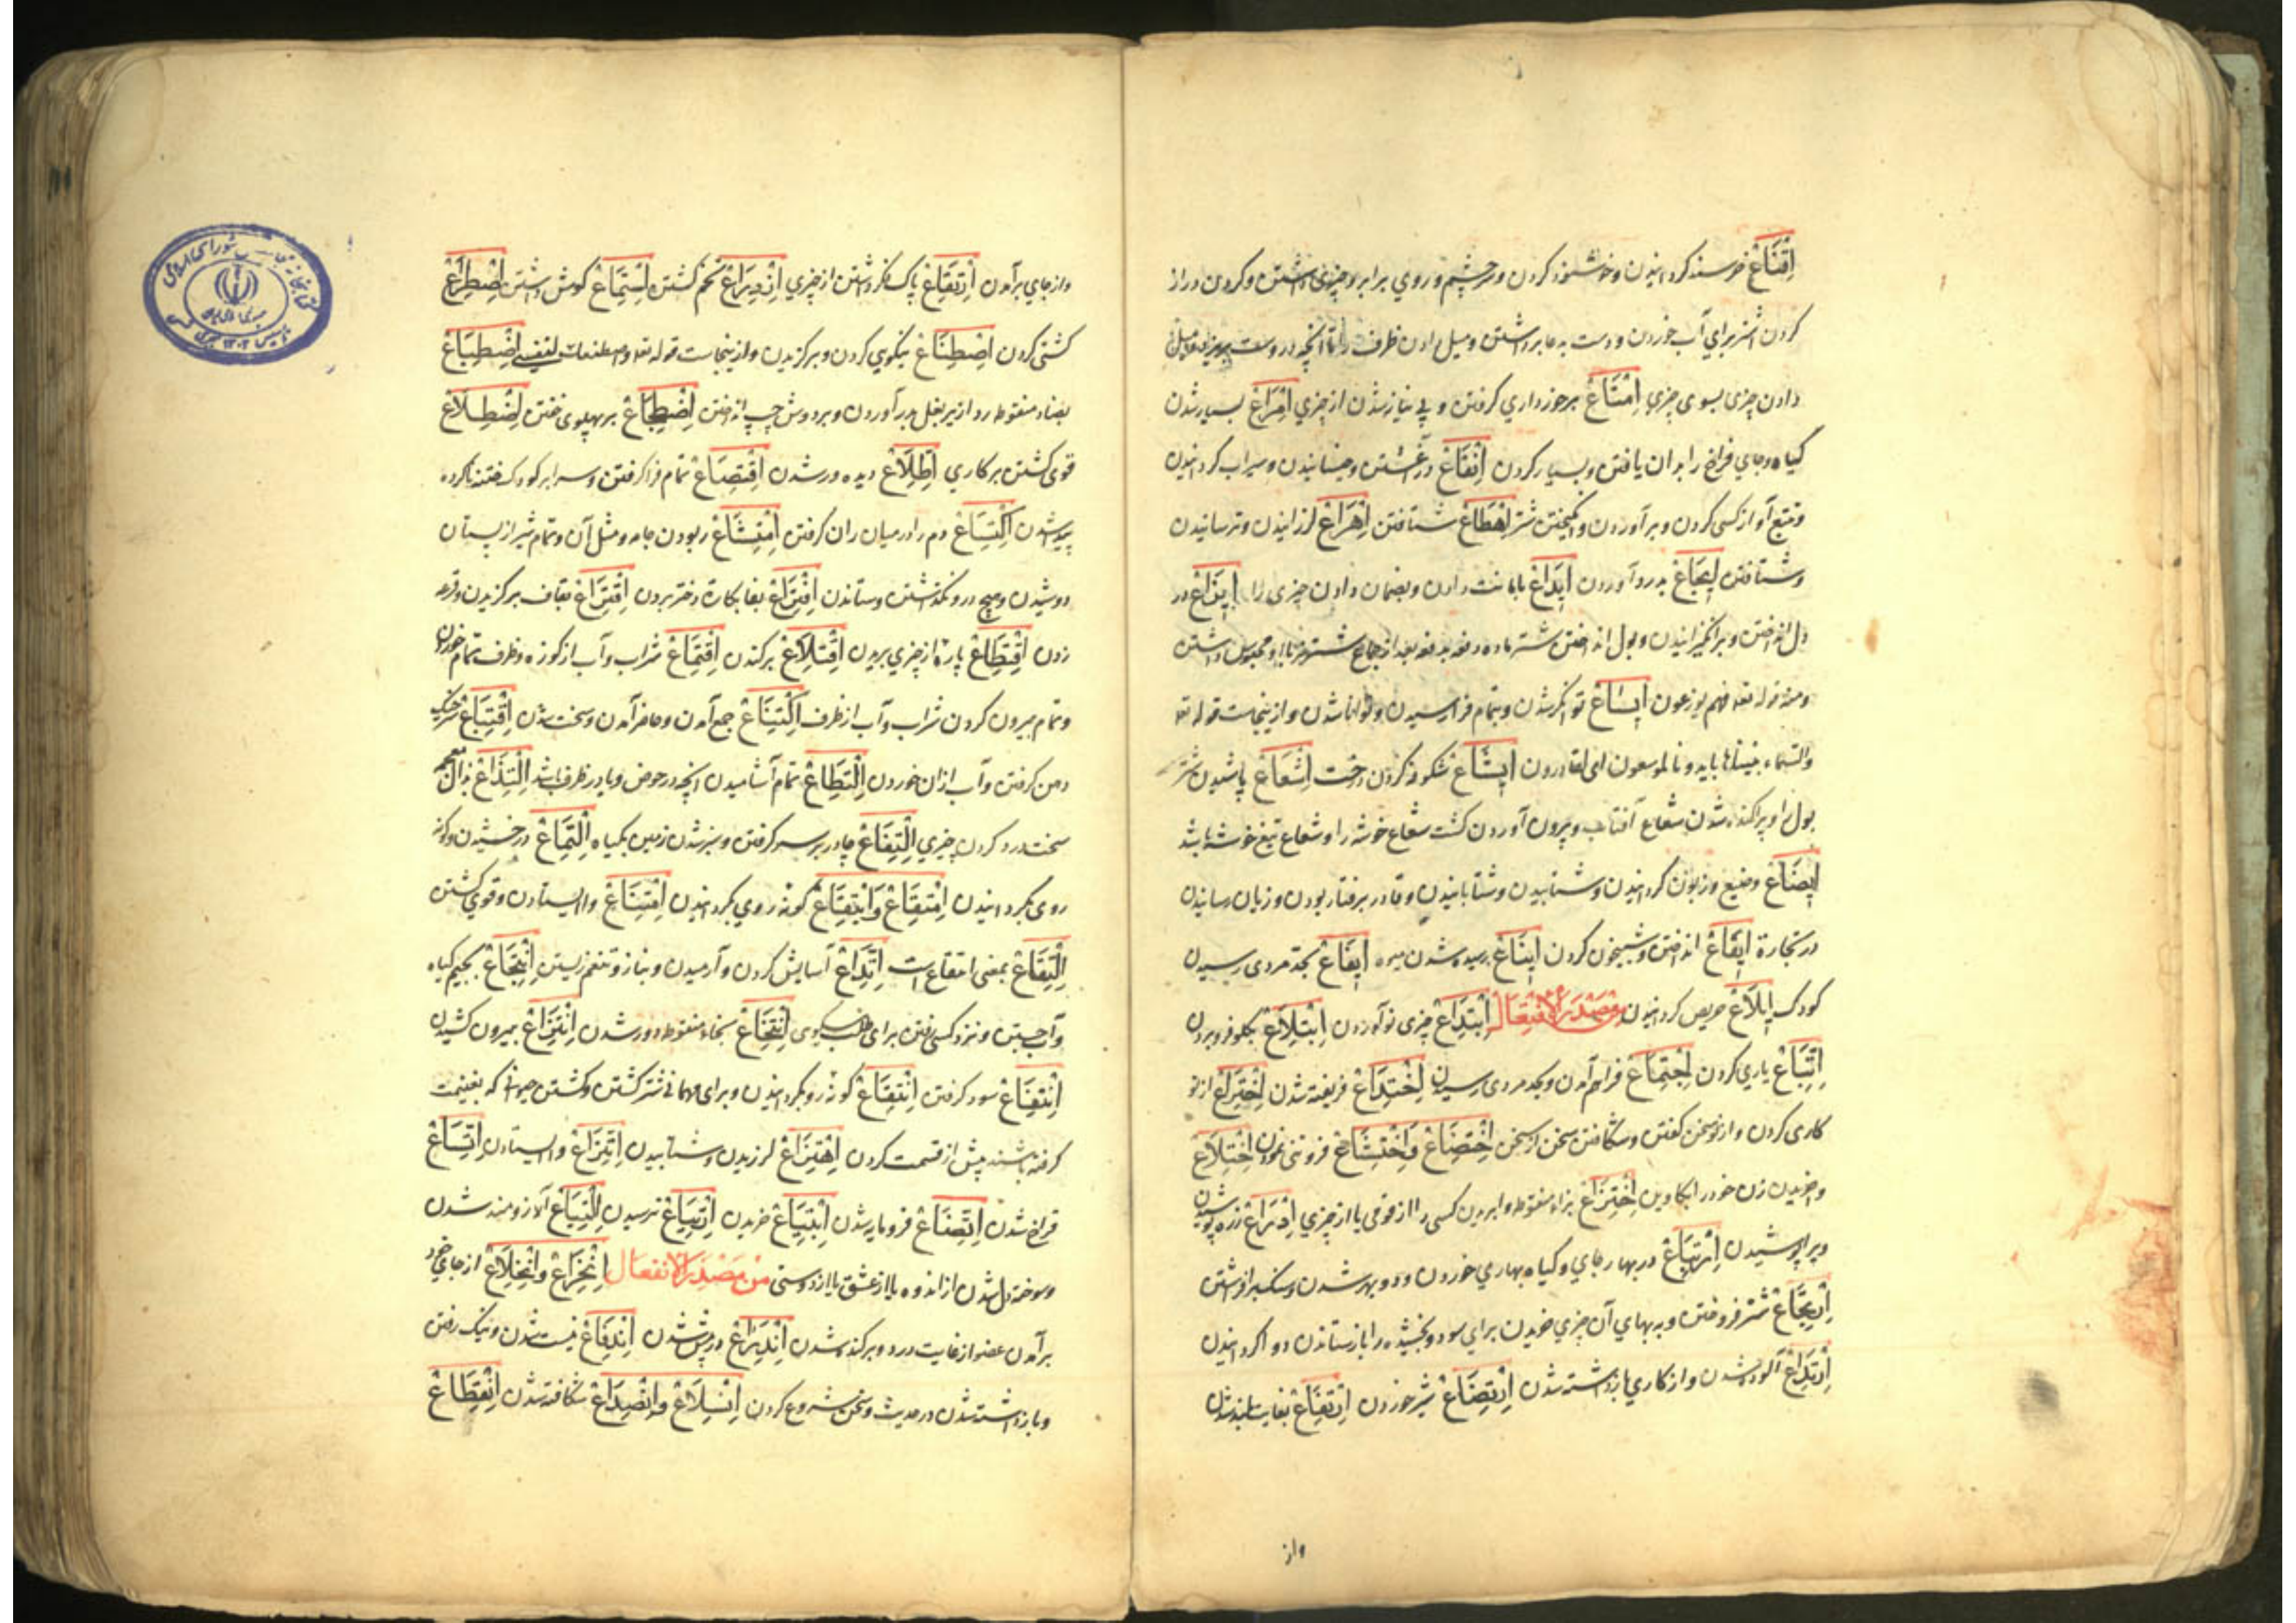 اِقْنَاعْ خرسند کردانیدن و خوشنود کردن و سر و چشم و روی برابر چیزی داشتن و کردن دراز
کردن اشتر برای آب خوردن و دست بدعا برداشتن و میل دادن ظرف را تا آنچه دروست بریزد
دادن چیزی بسوی چیزی اِمْتَاعْ برخورداری کرفتن و بی نیاز شدن از چیزی اِمْرَاعْ بسیار شدن
کیاه و جای فراخ را بدان یافتن و بسیار کردن اِنْقَاعْ در آغشتن و خیسانیدن و سیراب کردانیدن
و تتبع آواز کسی کردن و برآوردن و انکیختن شتر اِهْطَاعْ شتافتن اِهْرَاعْ لرزانیدن و ترسانیدن
و شتافتن اِیْجَاعْ بدرد آوردن اِیْدَاعْ بامانت دادن و بضمان دادن چیزی را اِیْزَاعْ در
دل انداختن و برانکیزانیدن و بول انداختن شتر ماده دفعه بدفعه بعد از جماع شتر نر با او و محبوس داشتن
و منه قوله تعه فهم یوزعون اِیْسَاعْ توانکر شدن و بتمام فرا رسیدن و توانا شدن و از ینجاست قوله تعه
والسماء بنیناها باید و انا لموسعون ای لقادرون اِیْشَاعْ شکوفه کردن درخت اِشْعَاعْ پاشیدن شتر
بول را و پراکنده شدن شعاع آفتاب و بیرون آوردن کشت شعاع خوشه را و شعاع تیغ خوشه باشد
اِیْضَاعْ وضیع و زبون کردانیدن و شتابیدن و شتابانیدن و قادر برفتار بودن و زیان رسانیدن
در تجارة اِیْقَاعْ انداختن و شبیخون کردن اِیْنَاعْ رسیده شدن میوه اِیْفَاعْ بحد مردی رسیدن
کودک اِیْلَاعْ حریص کردانیدن مِنْ مَصْدَرِ الْاِفْتِعَالِ اِبْتِدَاعْ چیزی نو آوردن اِبْتِلَاعْ بکلو فرو بردن
اِتِّبَاعْ یاری کردن اِجْتِمَاعْ فراهم آمدن و بحد مردی رسیدن اِخْتِدَاعْ فریفته شدن اِخْتِرَاعْ از نو
کاری کردن و از نو سخن کفتن و شکافتن سخن از سخن اِخْتِضَاعْ وَاِخْتِشَاعْ فروتنی نمودن اِخْتِلَاعْ
وا خریدن زن خود را بکاوین اِخْتِزَاعْ بزاء منقوطه وا بریدن کسی را از قومی یا از چیزی اِدِّرَاعْ زره پوشیدن
و پیراهن پوشیدن اِرْتِبَاعْ در بهار جای و کیاه بهاری خوردن و دو بهره شدن و سنک برافراشتن
اِرْتِجَاعْ شتر فروختن و به بهای آن چیزی خریدن برای سود و بخشیده را باز ستاندن و وا کردانیدن
اِرْتِدَاعْ آلوده شدن و از کاری باز داشته شدن اِرْتِضَاعْ شیر خوردن اِرْتِفَاعْ بغایت بلند شدن
واز
واز جای برآمدن اِرْتِقَاعْ پاک نکر داشتن از چیزی اِزْدِرَاعْ تخم کشتن اِسْتِمَاعْ کوش داشتن اِصْطِرَاعْ
کشتی کردن اِصْطِنَاعْ نیکویی کردن و برکزیدن و از ینجاست قوله تعه واصطنعتک لنفسی اِضْطِبَاعْ
بضاد منقوطه ردا از زیر بغل بدر آوردن و بر دوش چپ انداختن اِضْطِجَاعْ بر پهلوی خفتن اِضْطِلَاعْ
قوی کشتن بر کاری اِطِّلَاعْ دیده ور شدن اِقْتِصَاعْ تمام فرا کرفتن و سر ابر کودک ختنه ناکرده
پید شدن اِکْتِسَاعْ دم را در میان ران کرفتن اِمْتِشَاعْ ربودن جامه و مثل آن و تمام شیر از پستان
دوشیدن و هیچ درو نکذاشتن و ستاندن اِفْتِرَاعْ بفا بکارة دختر بردن اِقْتِرَاعْ بقاف برکزیدن و قرعه
زدن اِقْتِطَاعْ پاره از چیزی بریدن اِقْتِلَاعْ برکندن اِقْتِمَاعْ شراب و آب از کوزه و ظرف تمام خوردن
و تمام بیرون کردن شراب و آب از ظرف اِکْتِنَاعْ جمع آمدن و حاضر آمدن و سخت شدن اِقْتِبَاعْ سر خیک
دهن کرفتن و آب از آن خوردن اِلْتِطَاعْ تمام آشامیدن آنچه در حوض و یا در ظرف باشد اِلْتِذَاعْ بذال معجم
سخت درد کردن چیزی اِلْتِفَاعْ چادر بر سر کرفتن و سبز شدن زمین بکیاه اِلْتِمَاعْ درخشیدن و کونه
روی بکردانیدن اِمْتِقَاعْ وَابْتِقَاعْ کونه روی بکردانیدن اِمْتِنَاعْ وا ایستادن و قوی کشتن
اِلْتِقَاعْ بمعنی امتقاع است اِتِّدَاعْ آسایش کردن و آرمیدن و بناز و تنعم زیستن اِنْتِجَاعْ بجیم کیاه
و آب جستن و نزد کسی رفتن برای طلب نیکویی اِنْتِخَاعْ بخاء منقوطه دور شدن اِنْتِزَاعْ بیرون کشیدن
اِنْتِفَاعْ سود کرفتن اِنْتِقَاعْ کونه رو بکردانیدن و برای مهمانی شتر کشتن و کشتن حیوانی که بغنیمت
کرفته باشند پیش از قسمت کردن اِهْتِزَاعْ لرزیدن و شتابیدن اِتِّزَاعْ وا ایستادن اِتِّسَاعْ
فراخ شدن اِتِّضَاعْ فرو مایه شدن اِبْتِیَاعْ خریدن اِرْتِیَاعْ ترسیدن اِلْتِیَاعْ آرزومند شدن
و سوخته دل شدن از اندوه یا از عشق یا از دوستی مِنْ مَصْدَرِ الْاِنْفِعَالِ اِنْخِزَاعْ وَانْخِلَاعْ از جای خود
برآمدن عضو از غایت درد و برکنده شدن اِنْدِرَاعْ در پیش شدن اِنْدِفَاعْ نیست شدن و نیک رفتن
و باز داشته شدن در حدیث و سخن شروع کردن اِنْسِلَاعْ وَانْصِدَاعْ شکافته شدن اِنْقِطَاعْ